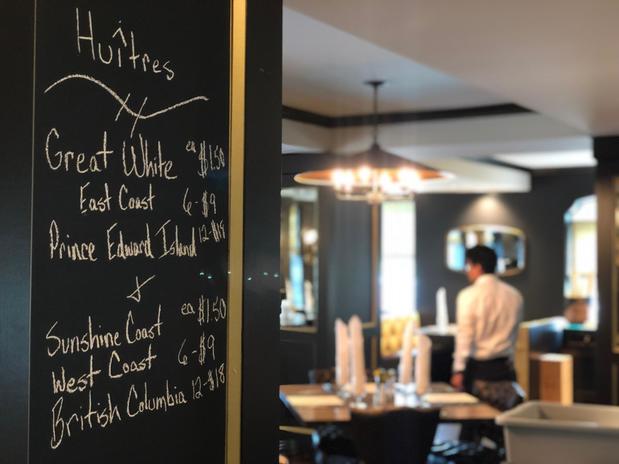 Huîtres
Great White ea $1.50
East Coast 6-$9
Prince Edward Island 12-$18
&
Sunshine Coast ea $1.50
West Coast 6-$9
British Columbia 12-$18